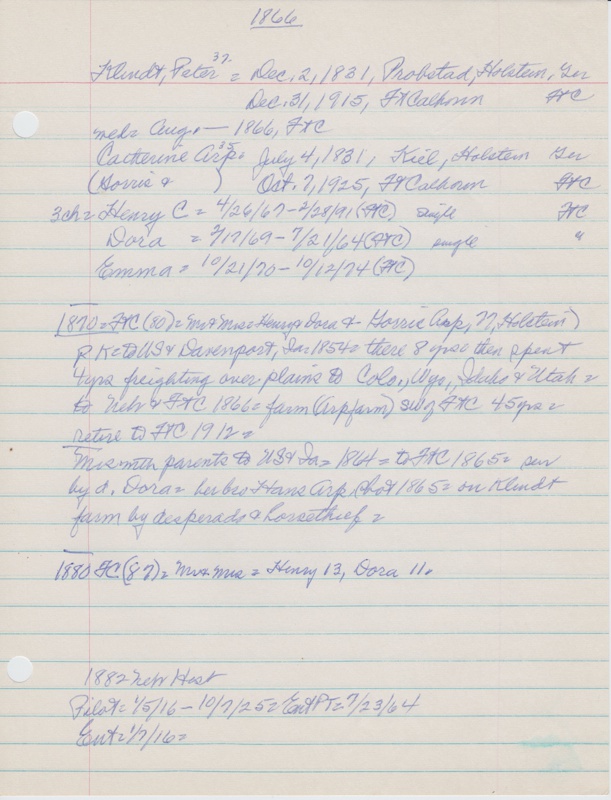 1866
Klindt, Peter 37 = Dec. 2, 1831, Probstad, Holstein, Ger
Dec. 31, 1915, Ft Calhoun FtC
med = Aug. — 1866, FtC
Catherine Arp 35 = July 4, 1831, Kiel, Holstein Ger
(Gorris & ) Oct. 7, 1925, Ft Calhoun FtC
3ch = Henry C = 4/26/67 - 2/28/91 (FtC) single FtC
Dora = 2/17/69 - 7/21/64 (FtC) single "
Emma = 10/21/70 - 10/12/74 (FtC)
1870 = FtC (80) = Mr & Mrs = Henry & Dora & Gorris Arp, 77, Holstein)
P. K = to US & Davenport, Ia = 1854 = there 8 yrs = then spent
4 yrs freighting over plains to Colo., Wyo., Idaho & Utah =
to Nebr & FtC 1866 = farm (Arp farm) SW of FtC 45 yrs =
retire to FtC 1912 =
Mrs = with parents to US & Ia = 1864 = to FtC 1865 = sur
by d. Dora = her bro Hans Arp shot 1865 = on Klindt
farm by desperado & horsethief =
1880 FC (87) = Mr & Mrs = Henry 13, Dora 11.
1882 Nebr Host
Pilot = 1/5/16 - 10/7/25 = Ent PT = 7/23/64
Ent = 1/7/16 =